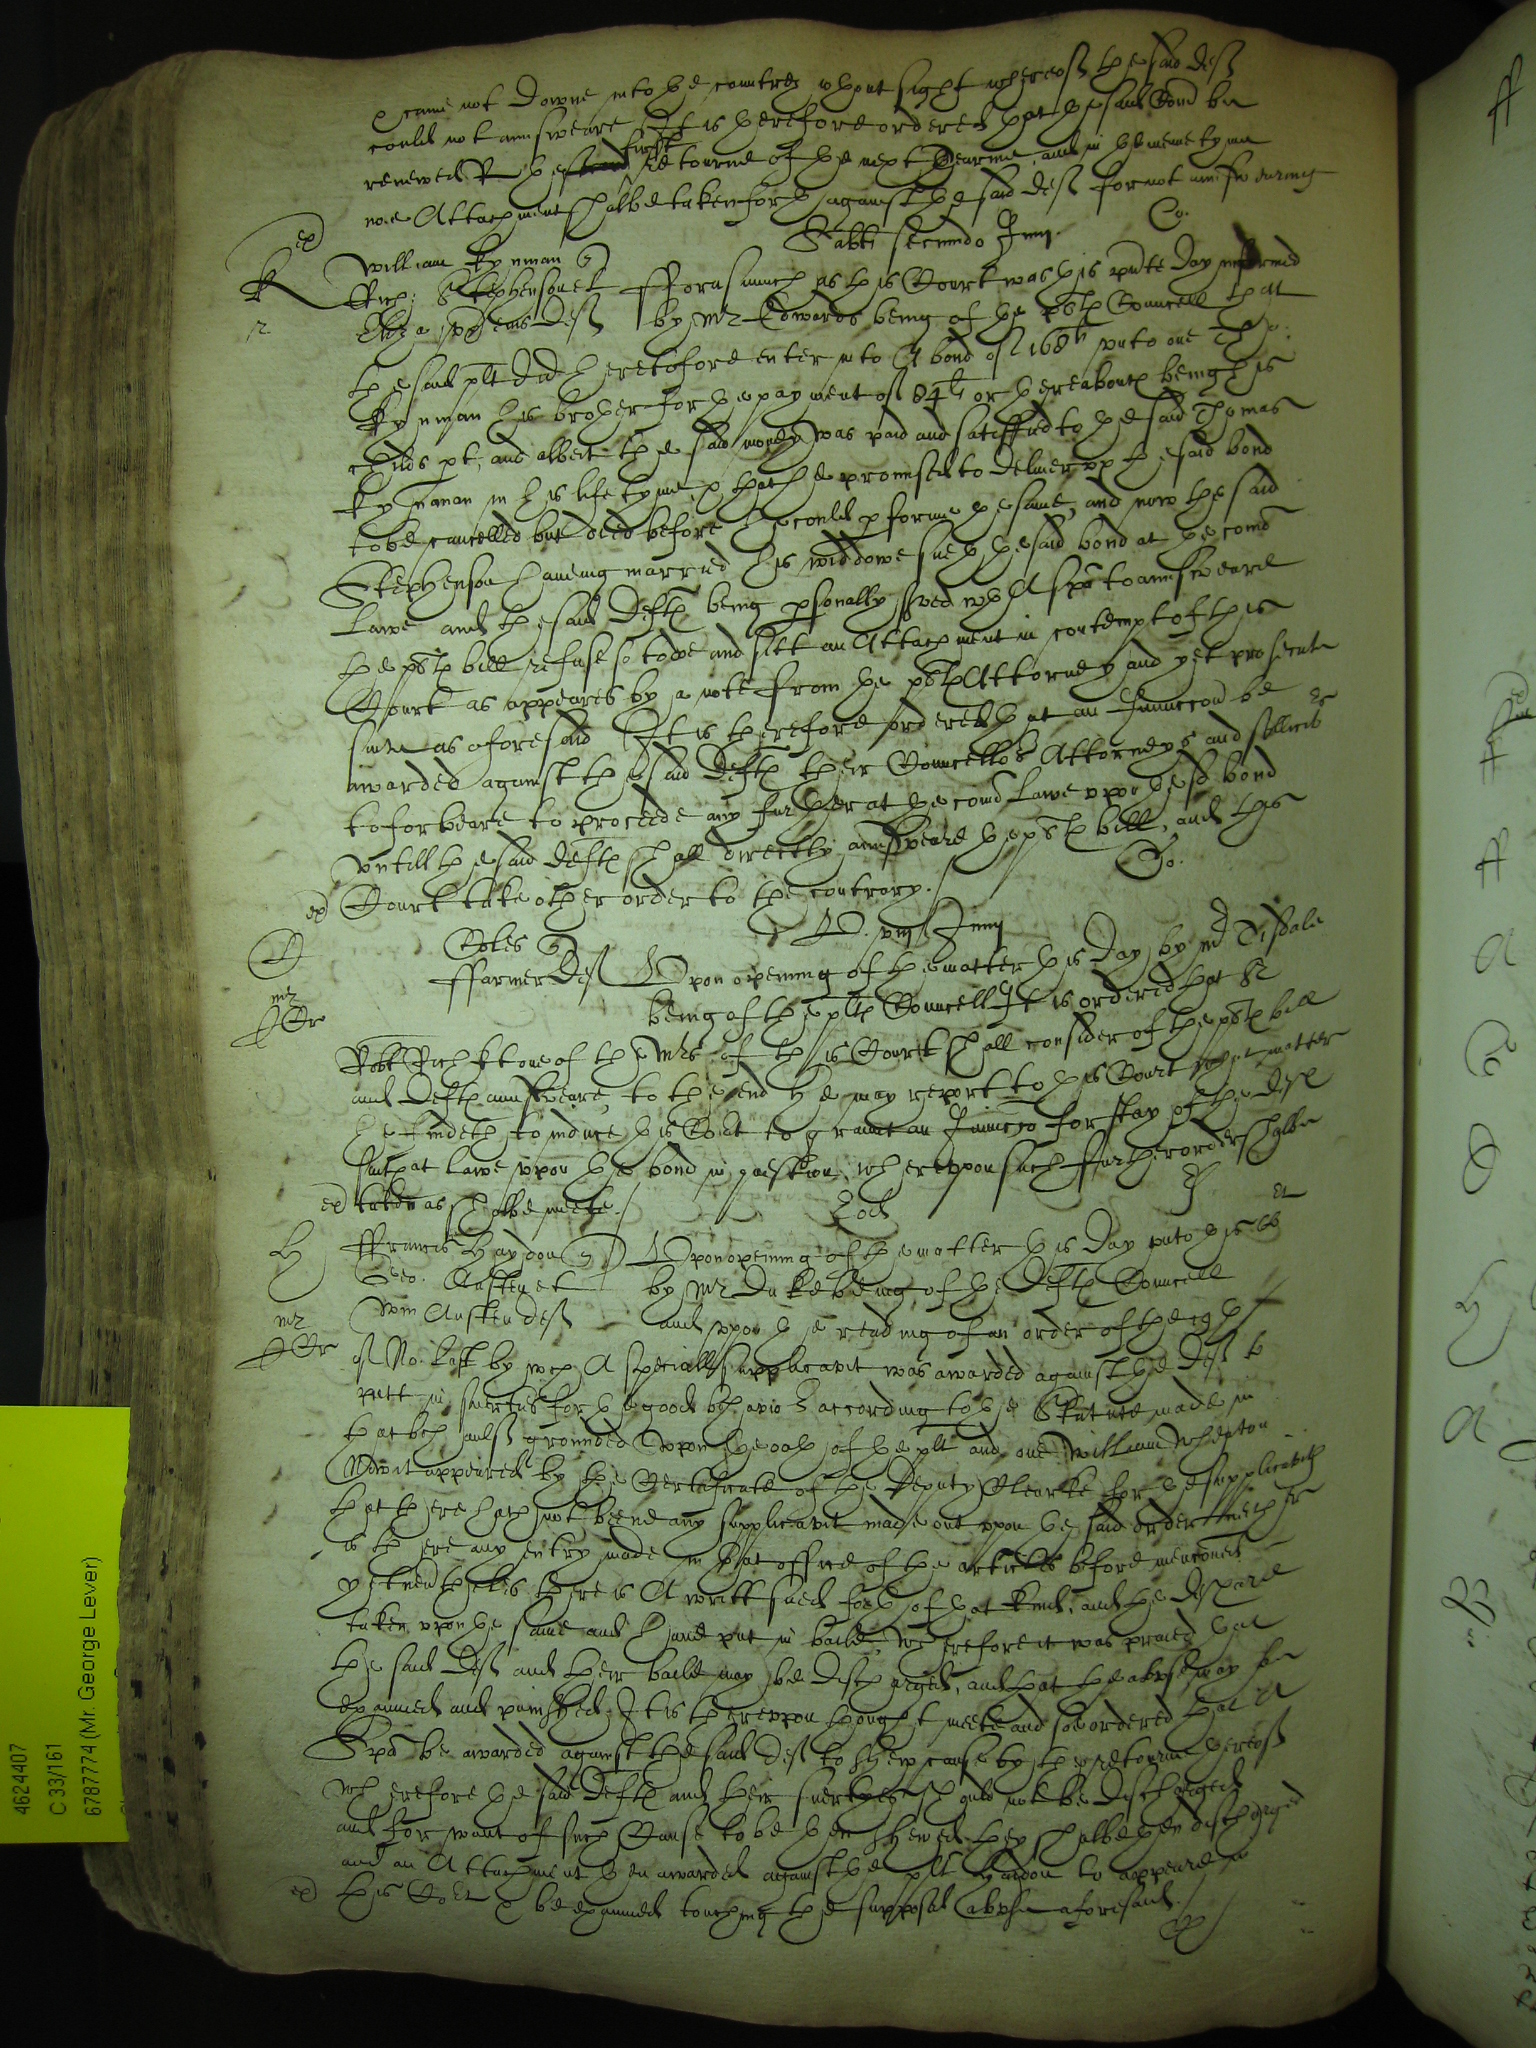 came not downe into the countrey wthout sight whereof the said deft
could not answeare It is therefore ordered that the said Comd be
renewed & the first retourne of the next Tearme, and in the meane tyme
noe Attachment shalbe taken forth against the said deft for not answearing
Sabti secundo Junij. Co.
ex
K
William Kynman
Rich: Stephenson et Fforasmuch as this Court was this pnte day informed
defts by Mr Edwards being of the plts Councell that
the said plt did heretofore enter into A bond of 168li vnto one Tho:
Kynman his brother for the payment of 84li or thereabouts being his
childs pt, and albeit the said money was paid and satisfied to the said Thomas
Kynman in his life tyme, hath he promised to deliver vp the said bond
to be cancelled but died before he could pforme the same, and now the said
Stephenson haveing married his widdowe sueth the said bond at the comon
Lawe and the said defts being psonally served wth A spa to answeare
the plts bill refuse so to doe and sitt an Attachment in contempt of this
Court as appeares by a note from the plts Attorney and yet prosecute
suite as aforesaid It is therefore ordered that an Iniunccon be
awarded against the said defts their Councellors Attorneys and sollicitors
to forbeare to proceede any further at the comon Lawe vpon the sd bond
vntill the said defts shall directly answeare the plts bill, and this
ex Court take other order to the contrary. Jo.
viij Junij
Coles
ffarmer deft Vpon opening of the matter this day by Mr Tisdale
being of the plts Councell It is ordered that Sr
mr
Robt Rich kt one of the Mrs of this Court shall consider of the plts bill
and defts answeare, to the end he may report to this Court what matter
he findeth to induce this Court to graunt an Iniuncco for stay of the defts
suite at lawe vpon the bond in question, wherevpon such further order shalbe
ex taken as shalbe meete.
Eod
H
ffrancis Haydon Vpon opening of the matter this day vnto this Co
Geo: Austen et by Mr Duke being of the defts Councell
Wm Austen deft and vpon the reading of an order of the
mr
of No: last by wch A speciall supplicavit was awarded against the deft to
putt in suerties for the good behavior according to the Statute made in
that behaulf grounded vpon the oath of the plt and one William
Now it appeared by the Certificate of the deputy Clearke for the supplicavits
that there hath not beene any supplicavit made out vpon the said order neither
is there any entry made in that office of the articles before menconed
yet nevertheles there is A writt sued forth of that kind, and the deft are
taken vpon the same and haue put in baile, Wherefore it was praied that
the said deft and their baile may be discharged, and that the abuse may be
examined and punished, It is therevpon thought meete and soe ordered that A
Spa be awarded against the said deft to shew cause by the retourne thereof
wherefore the said defts and their suertyes should not be discharged
and for want of such Cause to be then shewed they shalbe then discharged
and an Attachment then awarded against the plt Haidon to appeare in
ex this Court & be examined touching the supposed abuse aforesaid.
4624407
C 33/161
6787774 (Mr. George Lever)